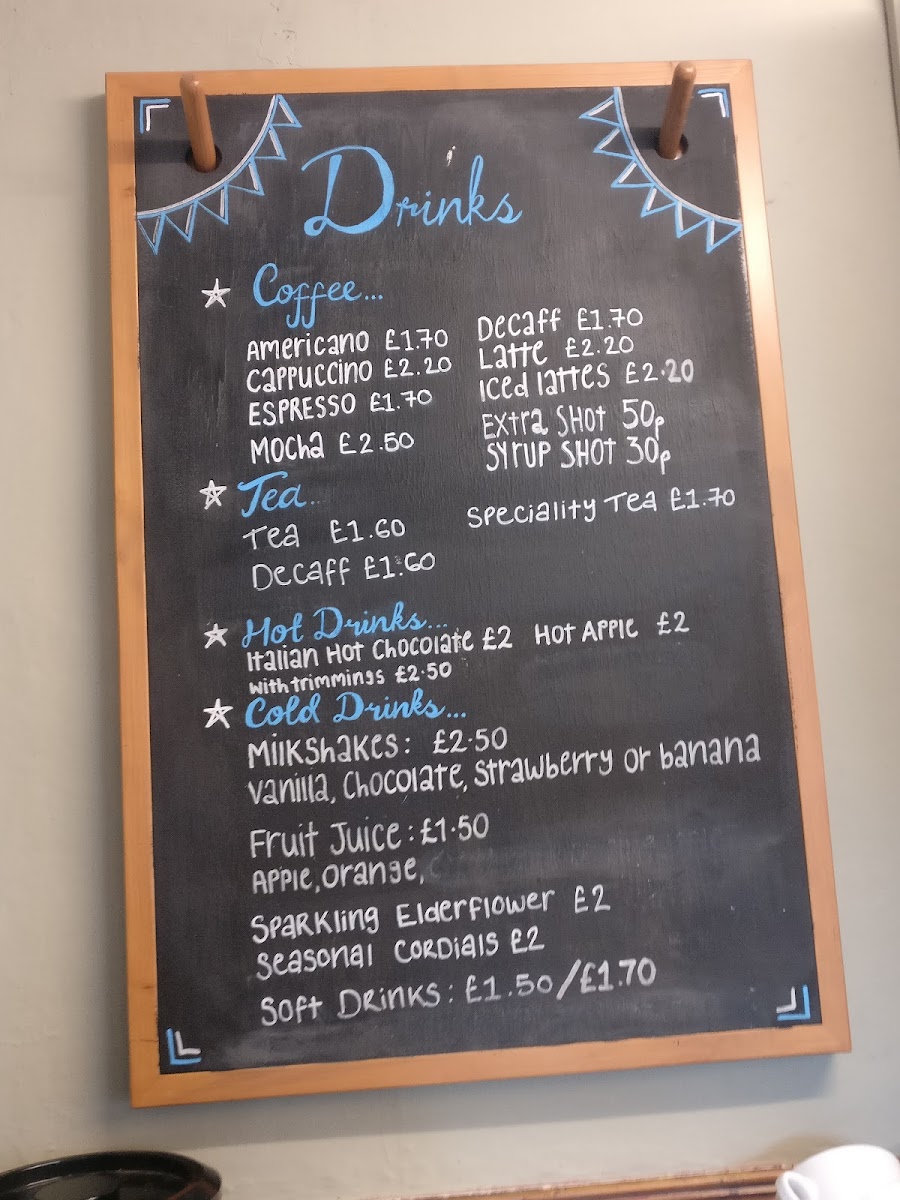 Drinks
Coffee...
Americano £1.70
Cappuccino £2.20
Espresso £1.70
Mocha £2.50
Decaff £1.70
Latte £2.20
Iced lattes £2.20
Extra Shot 50p
Syrup Shot 30p
Tea...
Tea £1.60
Decaff £1.60
Speciality Tea £1.70
Hot Drinks...
Italian Hot Chocolate £2 Hot Apple £2
with trimmings £2.50
Cold Drinks...
Milkshakes: £2.50
Vanilla, Chocolate, Strawberry or banana
Fruit Juice: £1.50
Apple, Orange,
Sparkling Elderflower £2
Seasonal Cordials £2
Soft Drinks: £1.50/£1.70